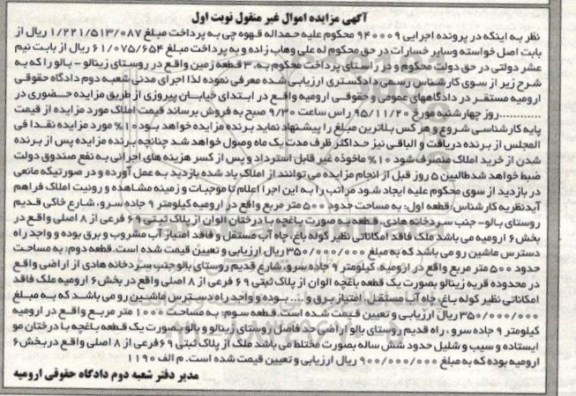 آگهی مزایده اموال غیر منقول نوبت اول
نظر به اینکه در پرونده اجرایی ۹۴۰۰۰۹ محکوم علیه حمداله قهوه چی به پرداخت مبلغ ۱/۲۲۱/۵۱۳/۰۸۷ ریال از
بابت اصل خواسته وسایر خسارات در حق محکوم له علی وهاب زاده و به پرداخت مبلغ ۶۱/۰۷۵/۶۵۴ ریال از بابت نیم
عشر دولتی در حق دولت محکوم و در راستای پرداخت محکوم به، ۳ قطعه زمین واقع در روستای زینالو - بالو را که به
شرح زیر از سوی کارشناس رسمی دادگستری ارزیابی شده معرفی نموده لذا اجرای مدنی شعبه دوم دادگاه حقوقی
ارومیه مستقر در دادگاههای عمومی و حقوقی ارومیه واقع در ابتدای خیابان پیروزی از طریق مزایده حضوری در
............روز چهارشنبه مورخ ۹۵/۱۱/۲۰ راس ساعت ۹/۳۰ صبح به فروش برساند قیمت املاک مورد مزایده از قیمت
پایه کارشناسی شروع و هر کس بلاترین مبلغ را پیشنهاد نماید برنده مزایده خواهد بود ۱۰% مورد مزایده نقدا فی
المجلس از برنده دریافت و الباقی نیز حداکثر ظرف مدت یک ماه وصول خواهد شد چنانچه برنده مزایده پس از برنده
شدن از خرید املاک منصرف شود ۱۰% ماخوذه غیر قابل استرداد و پس از کسر هزینه های اجرائی به نفع صندوق دولت
ضبط خواهد شد طالبین ۵ روز قبل از انجام مزایده می توانند از املاک یاد شده بازدید به عمل آورده و در صورتیکه مانعی
در بازدید از سوی محکوم علیه ایجاد شود مراتب را به این اجرا اعلام تا موجبات و زمینه مشاهده و رونیت املاک فراهم
آید نظریه کارشناس قطعه اول: به مساحت حدود ۵۰۰ متر مربع واقع در ارومیه کیلومتر ۹ جاده سرو، شارع خاکی قدیم
روستای بالو- جنب سردخانه هادی، قطعه به صورت باغچه با درختان الوان از پلاک ثبتی ۶۹ فرعی از ۸ اصلی واقع در
بخش ۶ ارومیه می باشد ملک فاقد امکاناتی نظیر کوله باغ، چاه آب مستقل و فاقد امتیاز آب مشروب و برق بوده و واجد راه
دسترس ماشین رو می باشد که به مبلغ ۳۵۰/۰۰۰/۰۰۰ ریال ارزیابی و تعیین قیمت شده است. قطعه دوم: به مساحت
حدود ۵۰۰ متر مربع واقع در ارومیه، کیلومتر ۹ جاده سرو، شارع قدیم روستای بالو جنب سردخانه هادی از اراضی واقع
در محدوده قریه زینالو بصورت یک قطعه باغچه الوان از پلاک ثبتی ۶۹ فرعی از ۸ اصلی واقع در بخش ۶ ارومیه ملک فاقد
امکاناتی نظیر کوله باغ، چاه آب مستقل، امتیاز برق و ... بوده و واجد راه دسترس ماشین رو می باشد که به مبلغ
۳۵۰/۰۰۰/۰۰۰ ریال ارزیابی و تعیین قیمت شده است. قطعه سوم: به مساحت ۱۰۰۰ متر مربع واقع در ارومیه
کیلومتر ۹ جاده سرو، راه قدیم روستای بالو اراضی حد فاصل روستای زینالو و بالو بصورت یک قطعه باغچه با درختان مو
ایستاده و سیب و شلیل حدود شش ساله بصورت مختلط می باشد ملک از پلاک ثبتی ۶۹ فرعی از ۸ اصلی واقع در بخش ۶
ارومیه بوده که به مبلغ ۹۰۰/۰۰۰/۰۰۰ ریال ارزیابی و تعیین قیمت شده است. م الف ۱۱۹۰
مدیر دفتر شعبه دوم دادگاه حقوقی ارومیه